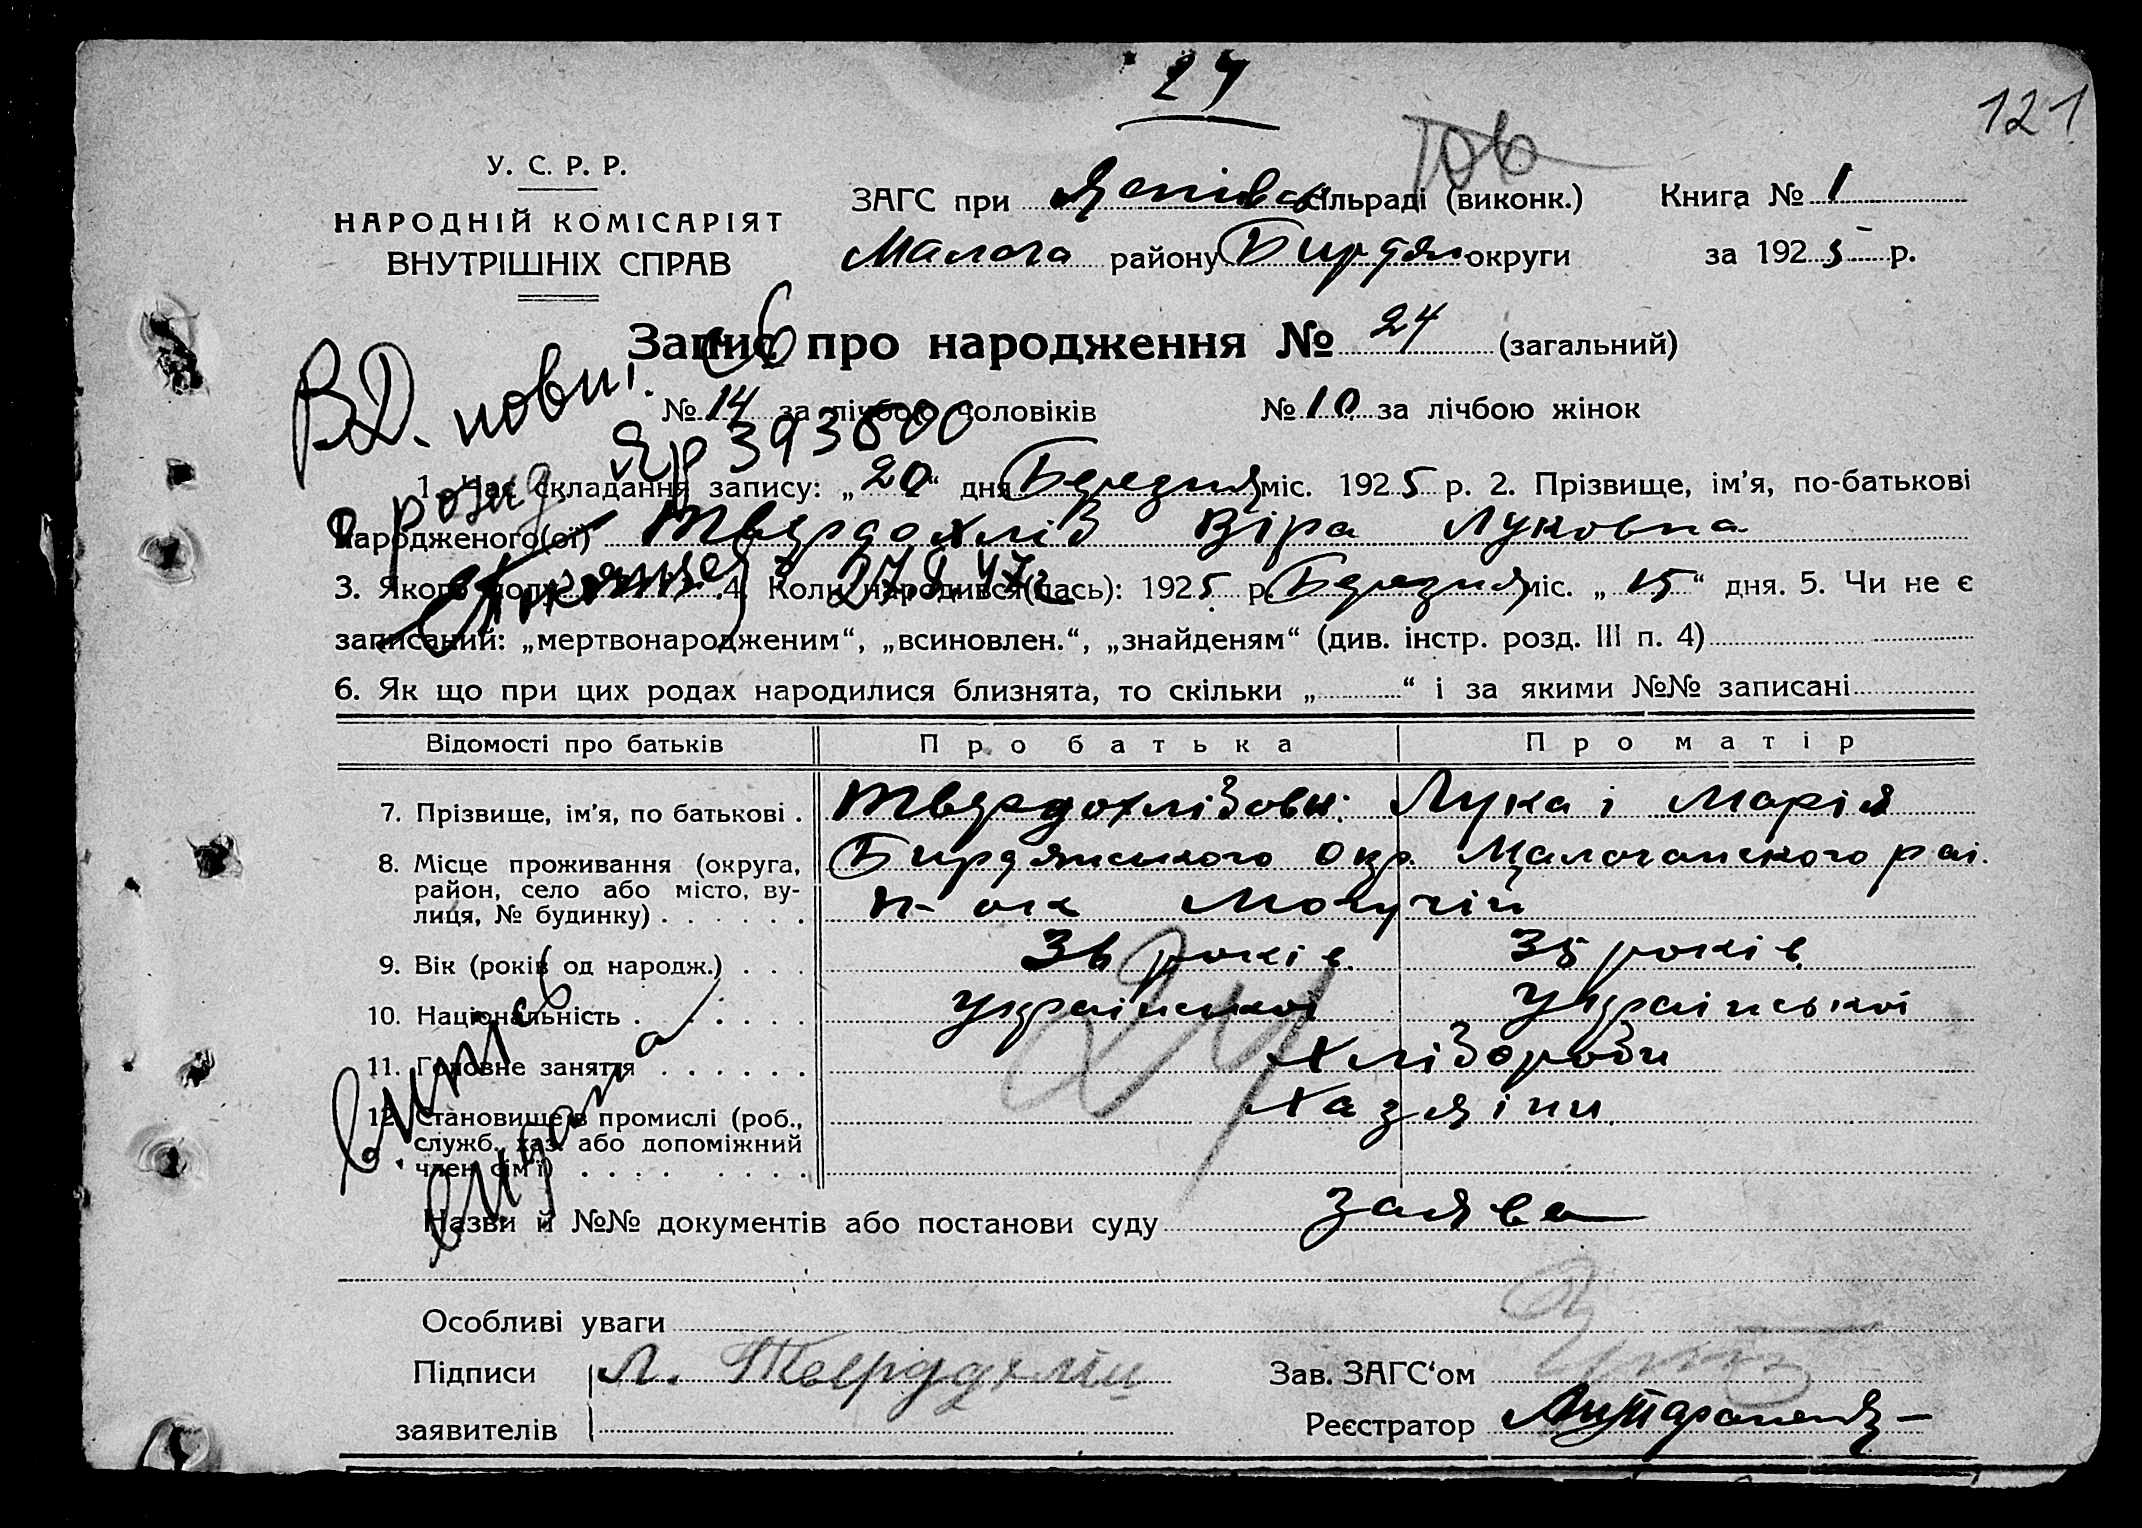 24
121
Тов
У. С. Р. Р.
НАРОДНІЙ КОМІСАРІЯТ
ВНУТРІШНІХ СПРАВ
ЗАГС при сільраді (виконк.) Книга № 1
Малога району Бирдян округи за 1925 р.
Запис про народження № 24 (загальний)
№ 14 за лічбою чоловіків № 10 за лічбою жінок
ВД. нови. сб
ЯР 393800
1. Час складання запису: „20“ дня Березня міс. 1925 р. 2. Прізвище, ім'я, по-батькові
народженого(ої) Твердохліб Віра Луковна
3. Якого полу 4. Коли народився(лась): 1925 р. Березня міс. „15“ дня. 5. Чи не є
записаний: „мертвонародженим“, „всиновлен.“, „знайденям“ (див. інстр. розд. III п. 4)
6. Як що при цих родах народилися близнята, то скільки „ “ і за якими №№ записані
Відомості про батьків Про батька Про матір
7. Прізвище, ім'я, по батькові . Твердохлібови: Лука і Марія
8. Місце проживання (округа, Бирдянського окр. Малоганского рай.
район, село або місто, ву-
лиця, № будинку) Могучій
9. Вік (років од народж.) 36 років 35 років
10. Національність української Української
11. Головне заняття Хлібороби
12. Становище в промислі (роб., Хазяіни
служб. хаз. або допоміжний
член сім'ї)
24
Назви й №№ документів або постанови суду заява
Особливі уваги
Підписи Л. Твердохліб Зав. ЗАГС'ом
заявителів Реєстратор